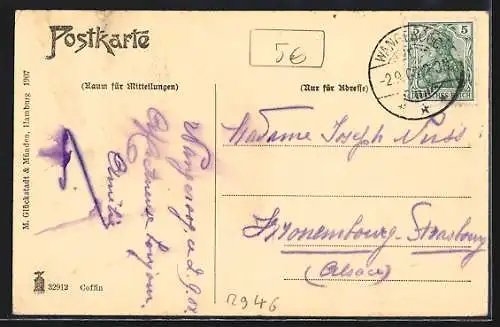 Postkarte
56
WANGEROOG
-2.9.
5
DEUTSCHES REICH
(Raum für Mitteilungen)
(Nur für Adresse)
M. Glückstadt & Münden, Hamburg 1907
Wangeroog d. 2. 9. 08.
Affectueux bonjour.
Amélie
Madame Joseph Nuss
Kronembourg-Strasbourg
(Alsace)
32912 Coffin
2946